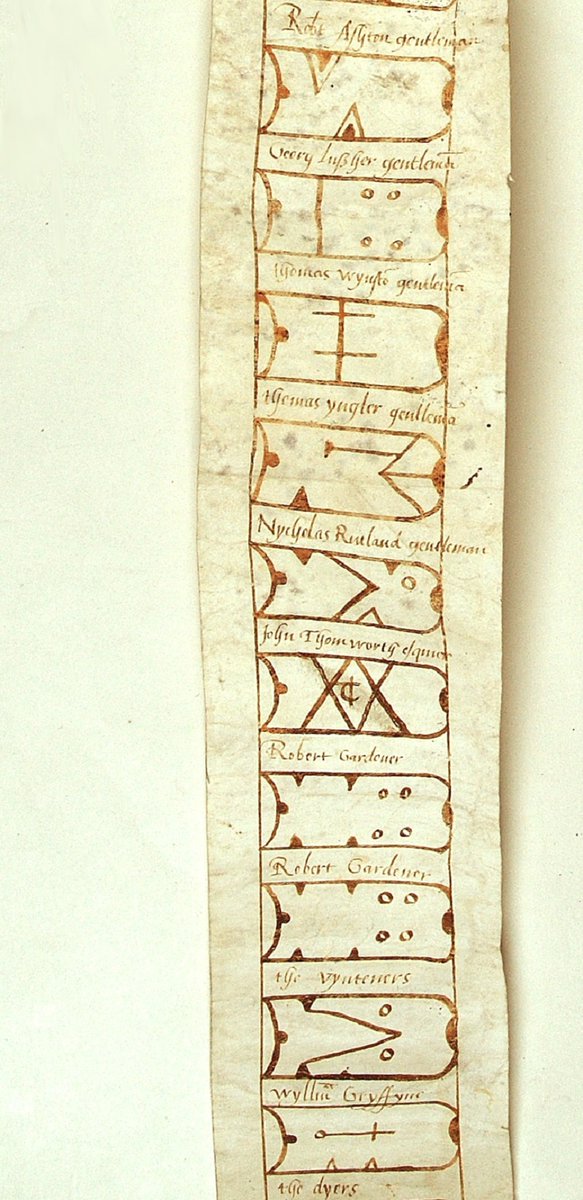 Robt Ashton gentleman
Georg Lussher gentleman
thomas wynsto gentlema
thomas yngler gentlema
Nycholas Rutland gentleman
John Thomworth esquier
Robert Gardener
Robert Gardener
the vynteners
wyllm Gryffyne
the dyers